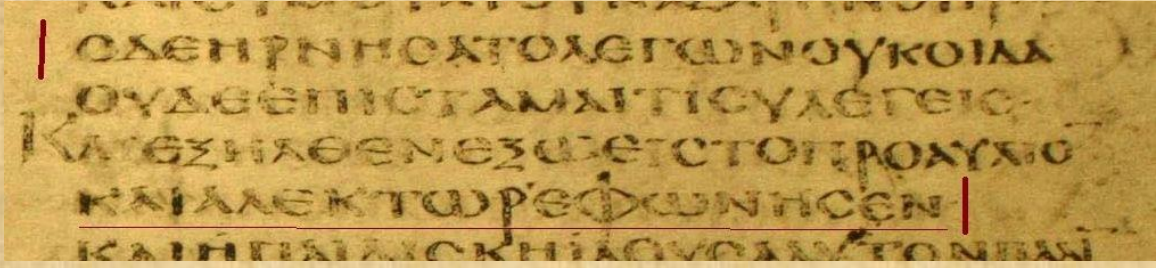 ΟΔΕΗΡΝΗϹΑΤΟΛΕΓΩΝΟΥΚΟΙΔΑ
ΟΥΔΕΕΠΙϹΤΑΜΑΙΤΙϹΥΛΕΓΕΙϹ
ΚΑΙΕΞΗΛΘΕΝΕΞΩΕΙϹΤΟΠΡΟΑΥΛΙΟ
ΚΑΙΑΛΕΚΤΩΡΕΦΩΝΗϹΕΝ
ΚΑΙΗΠΑΙΔΙϹΚΗΙΔΟΥϹΑΑΥΤΟΝΠΑΛΙ